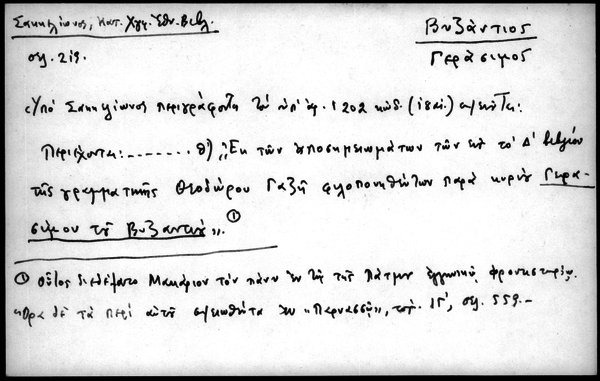 Σακκελίωνος, Κατ. Χγφ. Ἐθν. Βιβλ.
Βυζάντιος
σελ. 219.
Γεράσιμος
Ὑπὸ Σακκελίωνος περιγράφεται ὁ ὑπ' ἀρ. 1202 κῶδ. (ι8 αἰ.)
Περιέχονται: . . . . . . . θ) „Ἐκ τῶν ὑποσημειωμάτων τῶν εἰς τὸ Δ' βιβλίον
τῆς γραμματικῆς Θεοδώρου Γαζῆ φιλοπονηθέντων παρὰ κυρίου Γερα-
σίμου τοῦ Βυζαντίου". ①
① Οὗτος διεδέξατο Μακάριον τὸν πάνυ ἐν τῇ τῆς Πάτμου ἑλληνικῇ φροντιστηρίῳ.
Ὅρα δὲ τὰ περὶ αὐτοῦ σημειωθέντα ἐν «Παρνασσῷ», τόμ. ΙΓ', σελ. 559.-